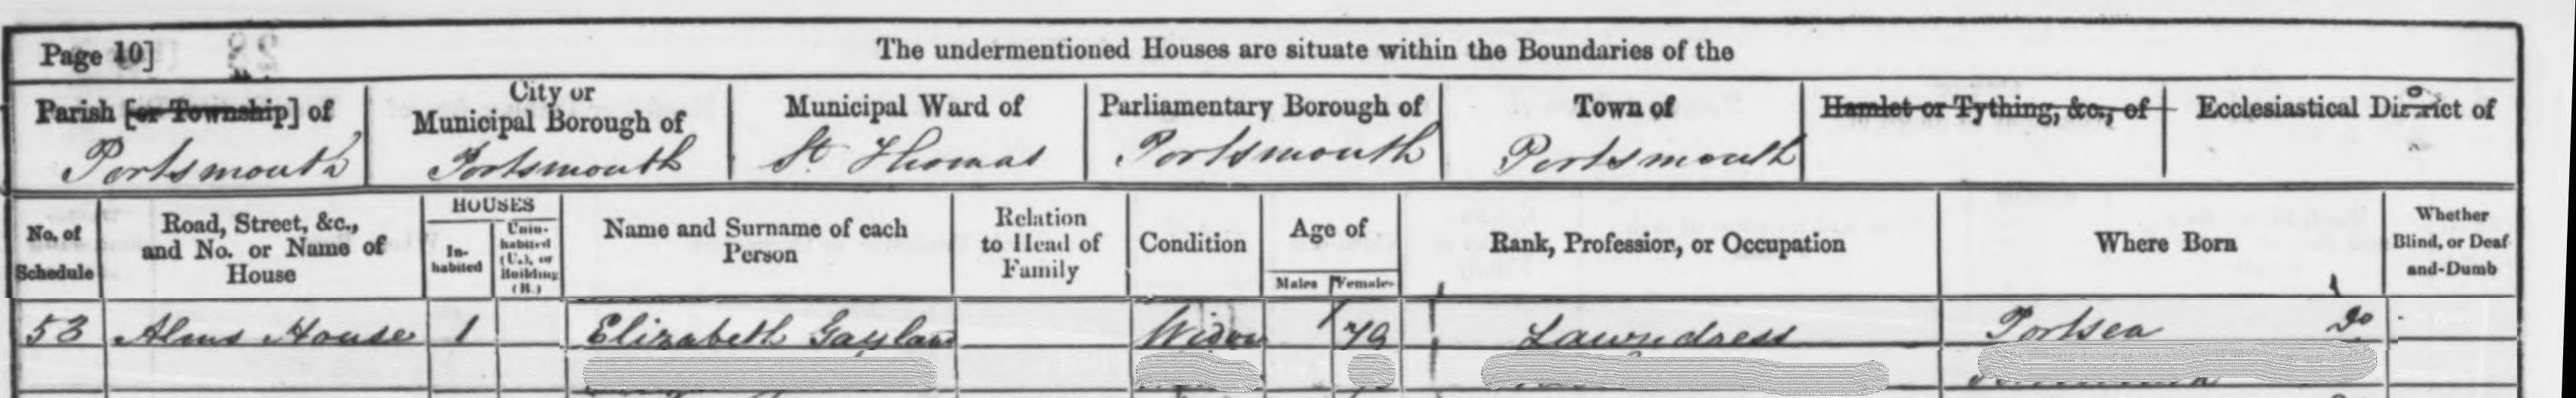 Page 10]
The undermentioned Houses are situate within the Boundaries of the
Parish [or Township] of
Portsmouth
City or
Municipal Borough of
Portsmouth
Municipal Ward of
St. Thomas
Parliamentary Borough of
Portsmouth
Town of
Portsmouth
Hamlet or Tything, &c., of
Ecclesiastical District of
No. of
Schedule
Road, Street, &c.,
and No. or Name of
House
HOUSES
In-
habited
Unin-
habited
(U.), or
Building
(B.)
Name and Surname of each
Person
Relation
to Head of
Family
Condition
Age of
Males
Females
Rank, Profession, or Occupation
Where Born
Whether
Blind, or Deaf-
and-Dumb
53 Alms House 1 Elizabeth Widow 79 Lawndress Portsea Do